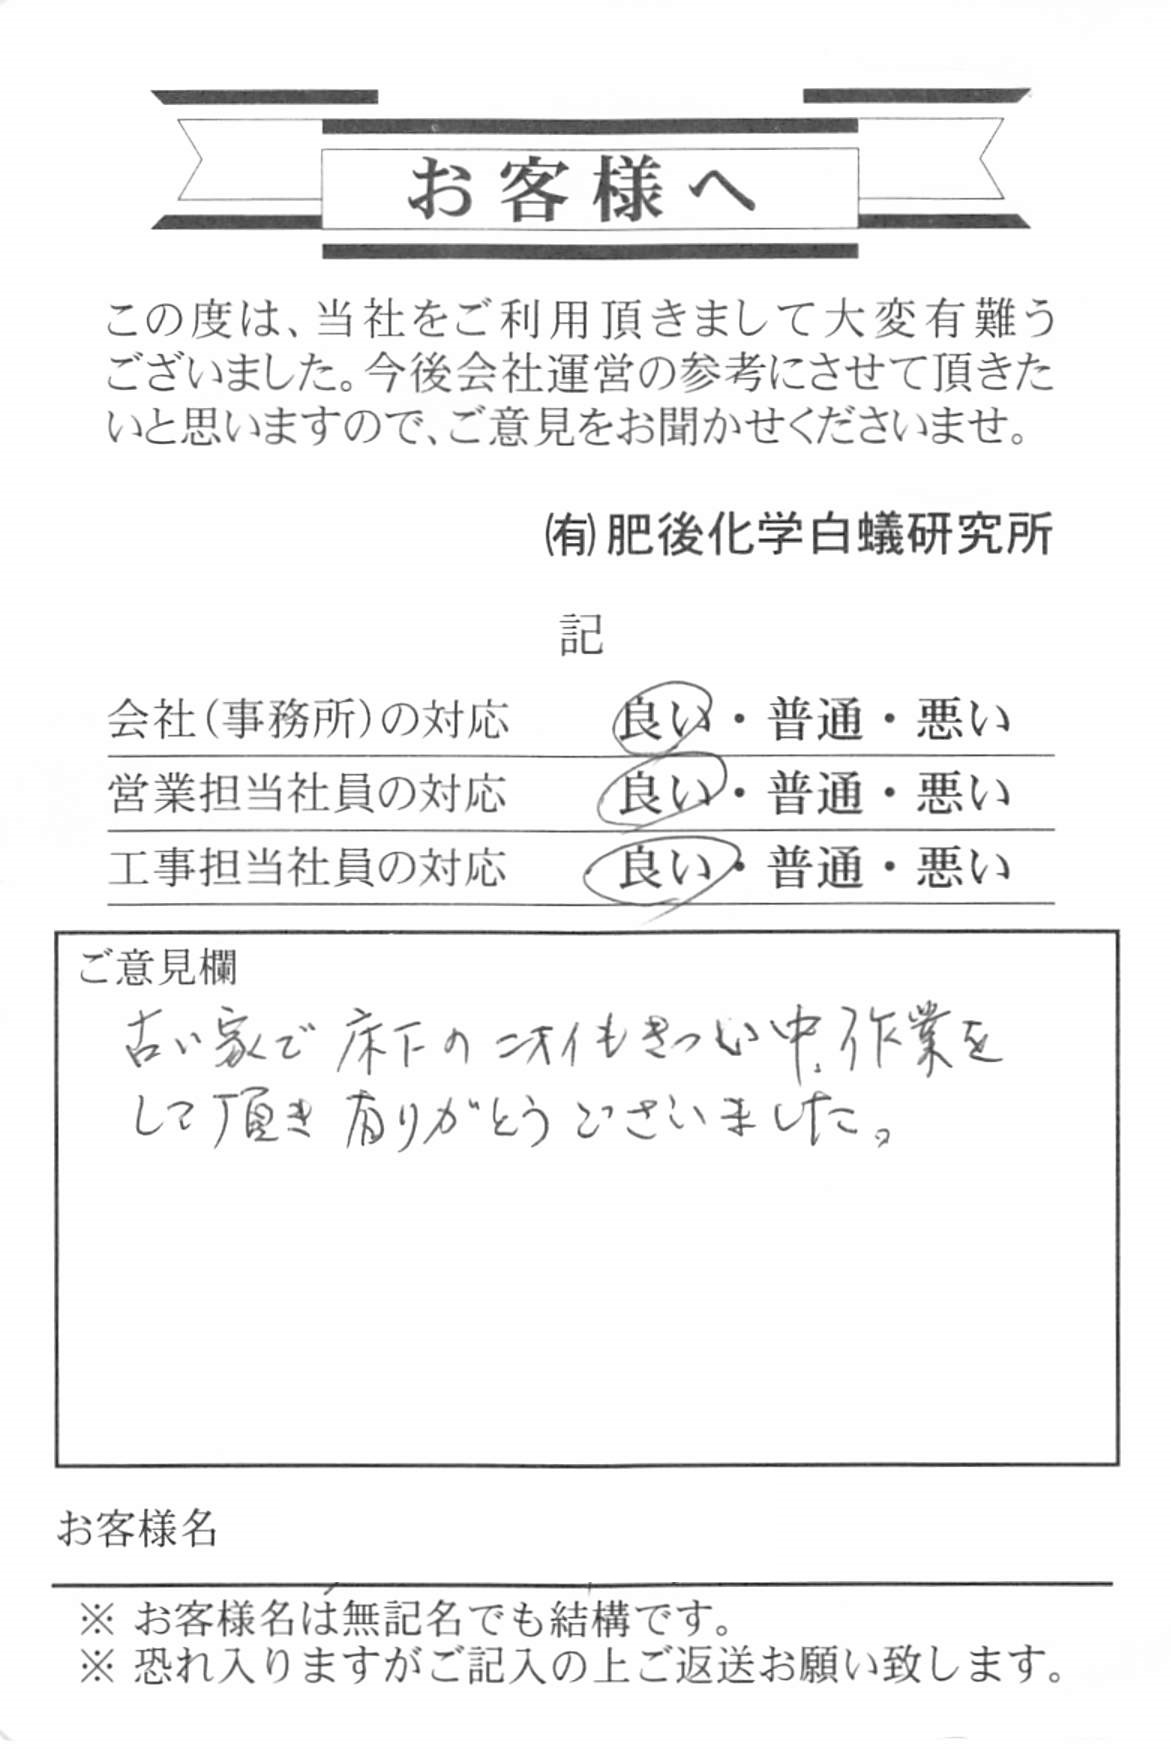 お客様へ
この度は、当社をご利用頂きまして大変有難う
ございました。今後会社運営の参考にさせて頂きた
いと思いますので、ご意見をお聞かせくださいませ。
㈲肥後化学白蟻研究所
記
会社(事務所)の対応 良い・普通・悪い
営業担当社員の対応 良い・普通・悪い
工事担当社員の対応 良い・普通・悪い
ご意見欄
古い家で床下のニオイもきつい中、作業を
して頂き有りがとうございました。
お客様名
※ お客様名は無記名でも結構です。
※ 恐れ入りますがご記入の上ご返送お願い致します。